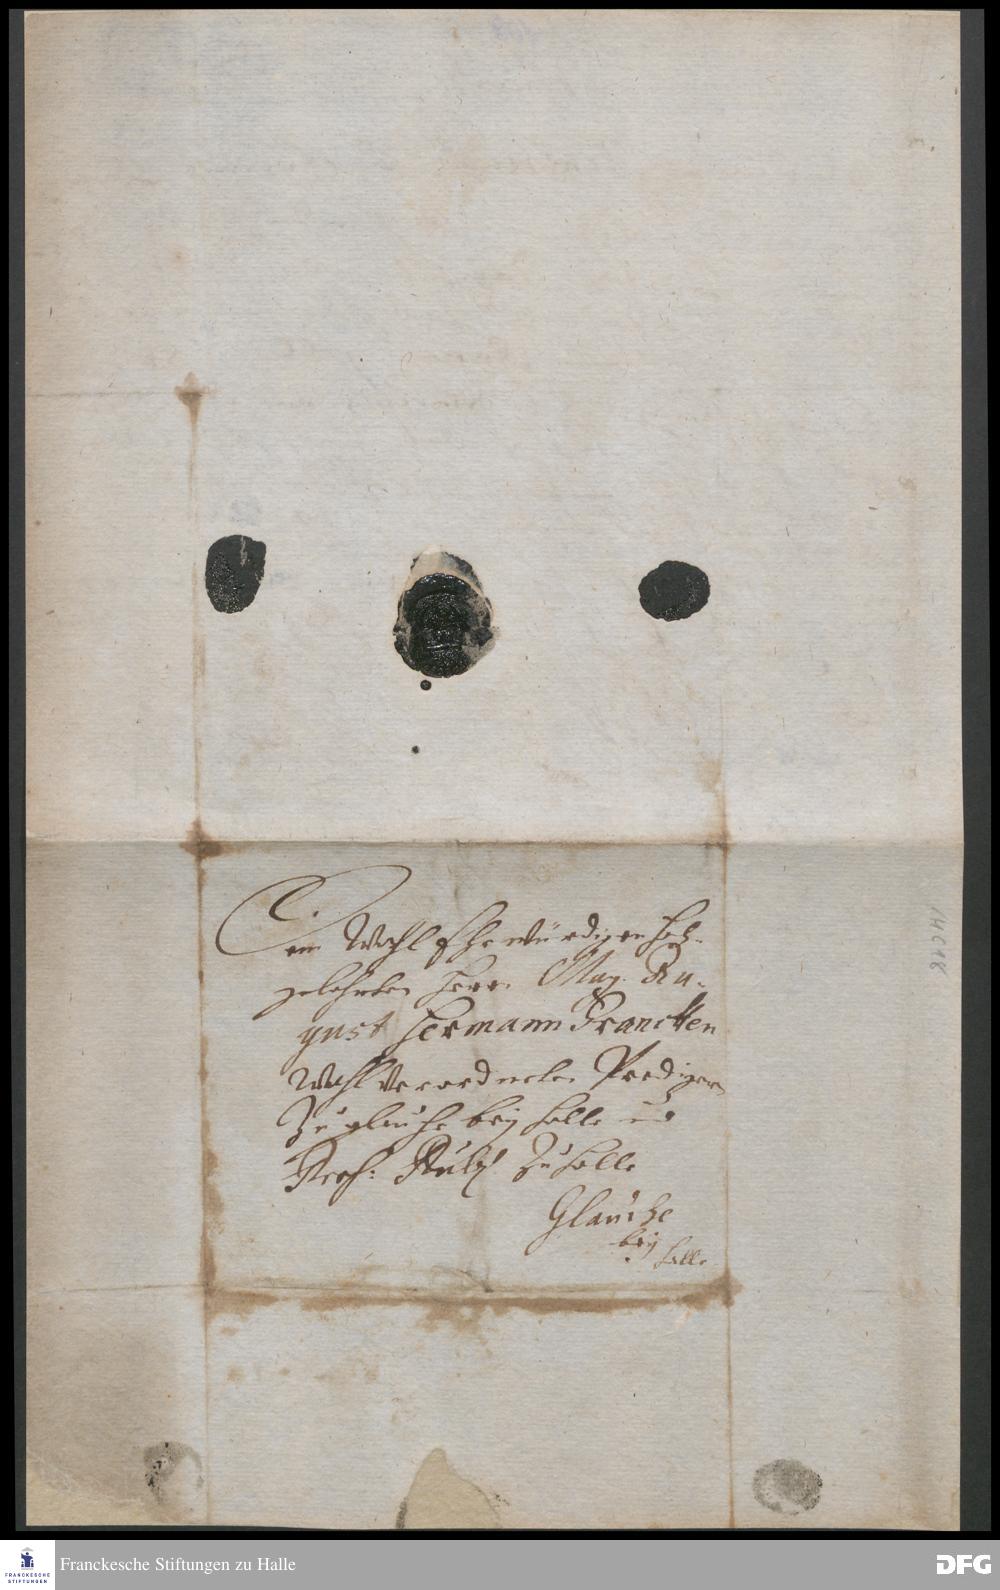 Dem Wohl Ehrwürdigen Hoch-
gelahrten Herrn Mag. Au-
gust Hermann Francken
Wohl Verordneten Prediger
Zu glauche bey Halle und
Prof: Publ: Zu Halle
Glauche
bey
Halle
14C18
Franckesche Stiftungen zu Halle
FRANCKESCHE
STIFTUNGEN
DFG